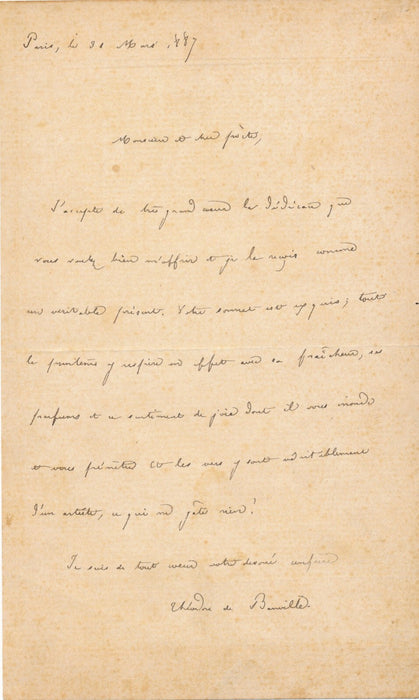 Paris, le 31 Mars 1887
Monsieur et cher poëte,
J'accepte de très grand cœur la dédicace que
vous voulez bien m'offrir et je la reçois comme
un véritable présent. Votre sonnet est exquis; tout
le printemps y respire en effet avec sa fraîcheur, ses
parfums et ce sentiment de joie dont il vous inonde
et vous pénètre et les vers y sont véritablement
d'un artiste, ce qui ne gâte rien!
Je suis de tout cœur votre dévoué confrère
Théodore de Banville.